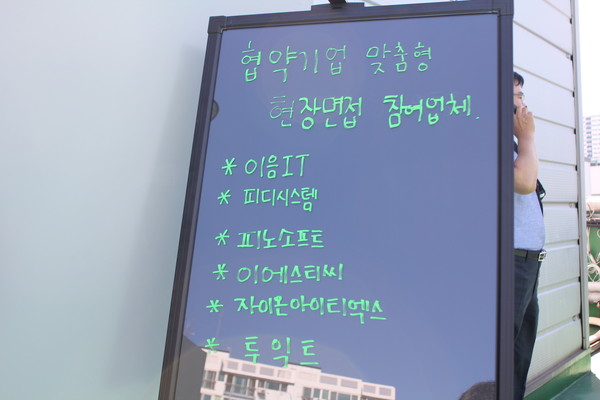 협약기업 맞춤형
현장면접 참여업체.
* 이음IT
* 피디시스템
* 피노소프트
* 이에스티씨
* 자이온아이티엑스
* 투익트